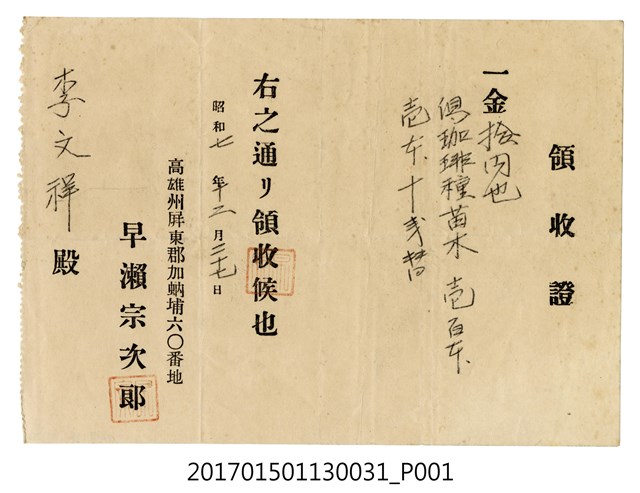 領收證
一金拾円也
但珈琲種苗木壱百本
壱本十戔替
右之通リ領收候也
昭和七年三月二十七日
高雄州屏東郡加蚋埔六〇番地
早瀨宗次郎
李文祥殿
201701501130031_P001